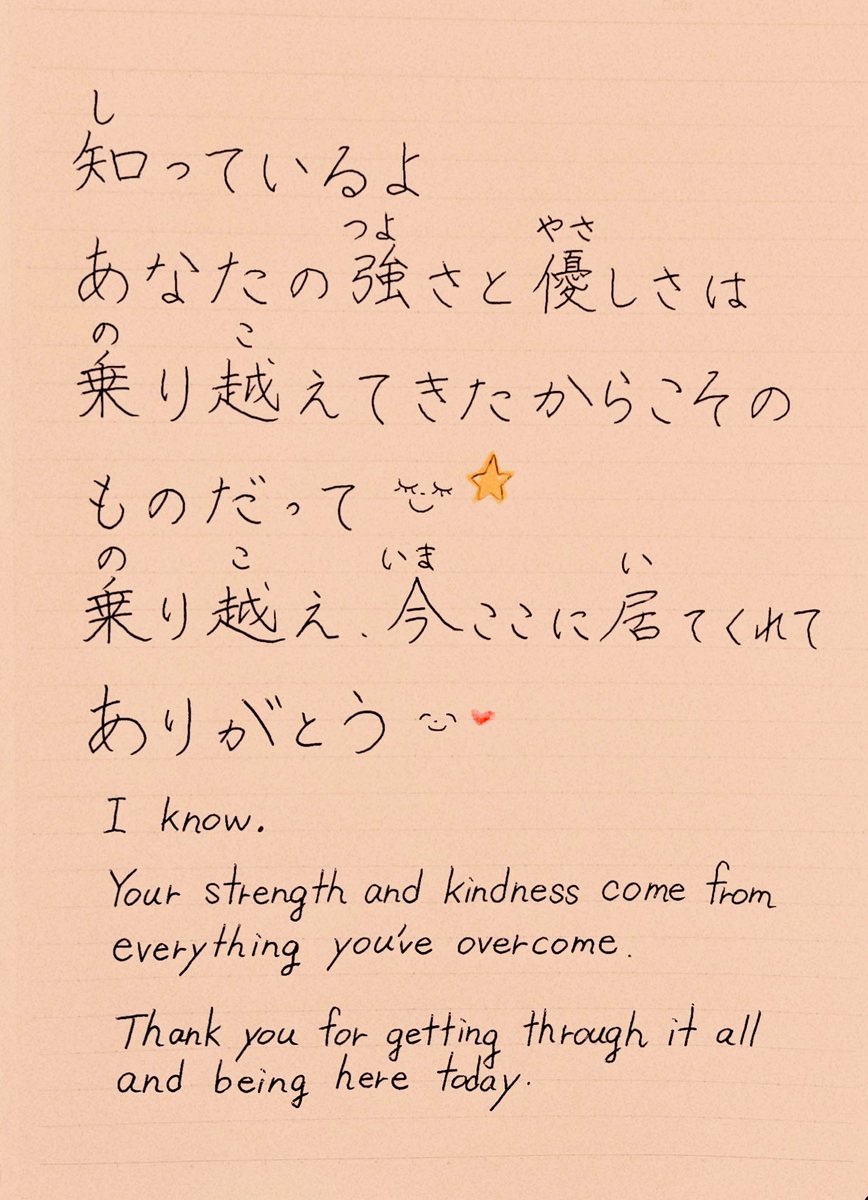 し
知っているよ
つよ やさ
あなたの強さと優しさは
の こ
乗り越えてきたからこその
ものだって
の こ いま い
乗り越え、今ここに居てくれて
ありがとう
I know.
Your strength and kindness come from
everything you've overcome.
Thank you for getting through it all
and being here today.